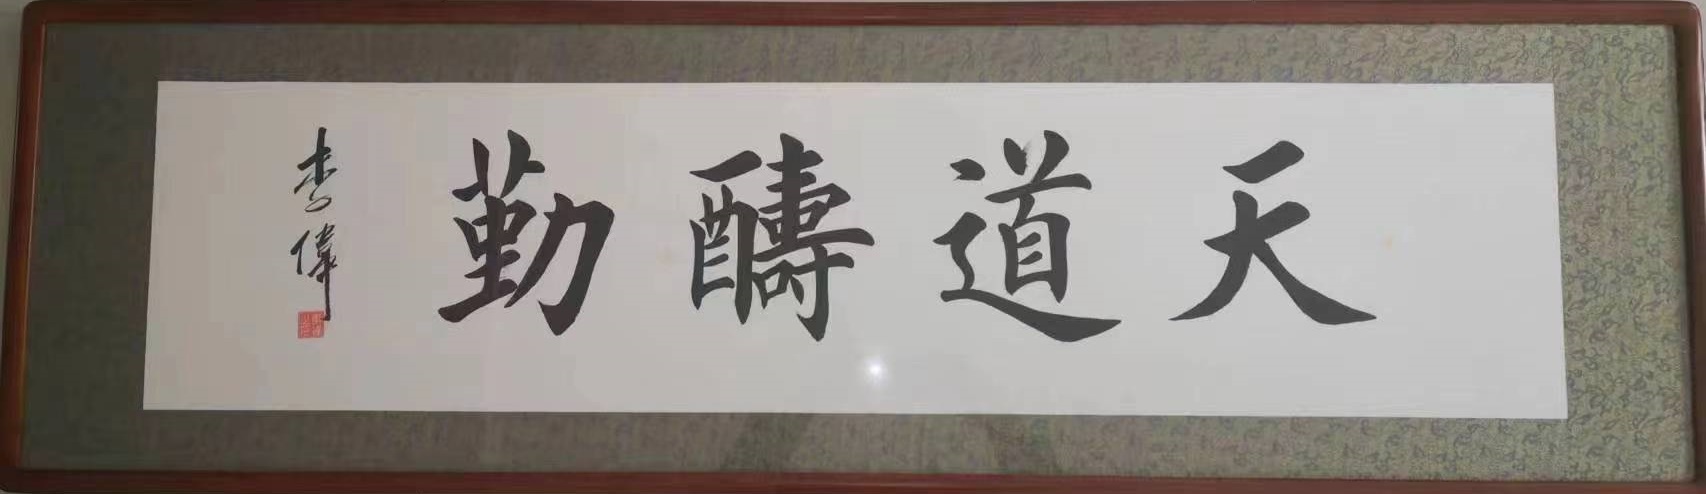 天道酬勤
李偉